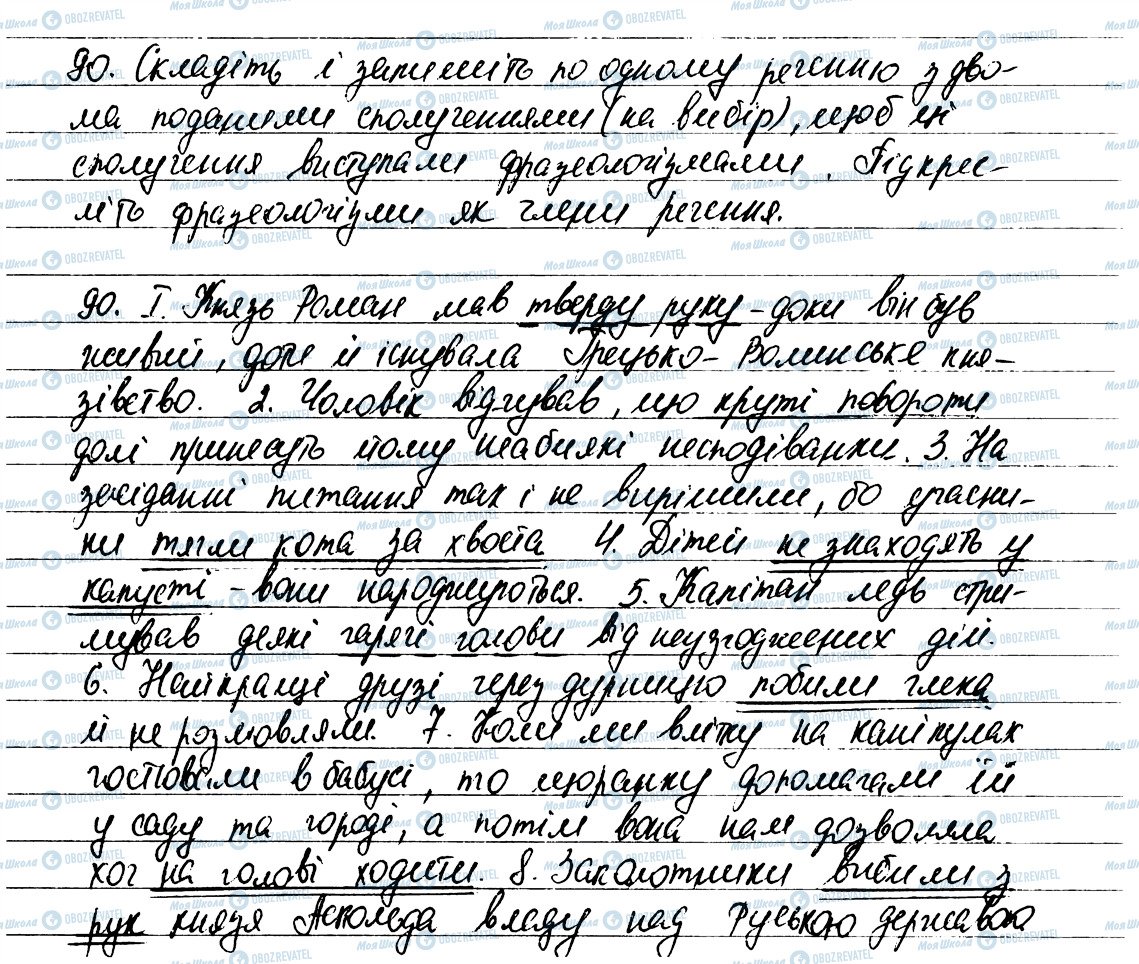 90. Складіть і запишіть по одному реченню з дво-
ма поданими сполученнями (на вибір), щоб ці
сполучення виступали фразеологізмами. Підкрес-
літь фразеологізми як члени речення.
90. I. Князь Роман мав тверду руку - доки він був
живий, доти й існувала Грецько-Волинське кня-
зівство. 2. Чоловік відчував, що круті повороти
долі принесуть йому неабиякі несподіванки. 3. На
засіданні питання так і не вирішили, бо учасни-
ки тягли кота за хвоста 4. Дітей не знаходять у
капусті - вони народжуються. 5. Капітан ледь стри-
мував деякі гарячі голови від неузгоджених дій
6. Найкращі друзі через дурницю побили глека
й не розмовляли. 7. Коли ми влітку на канікулах
гостювали в бабусі, то щоранку допомагали їй
у саду та городі, а потім вона нам дозволяла
хоч на голові ходити. 8. Заколотники вибили з
рук князя Аскольда владу над Руською державою